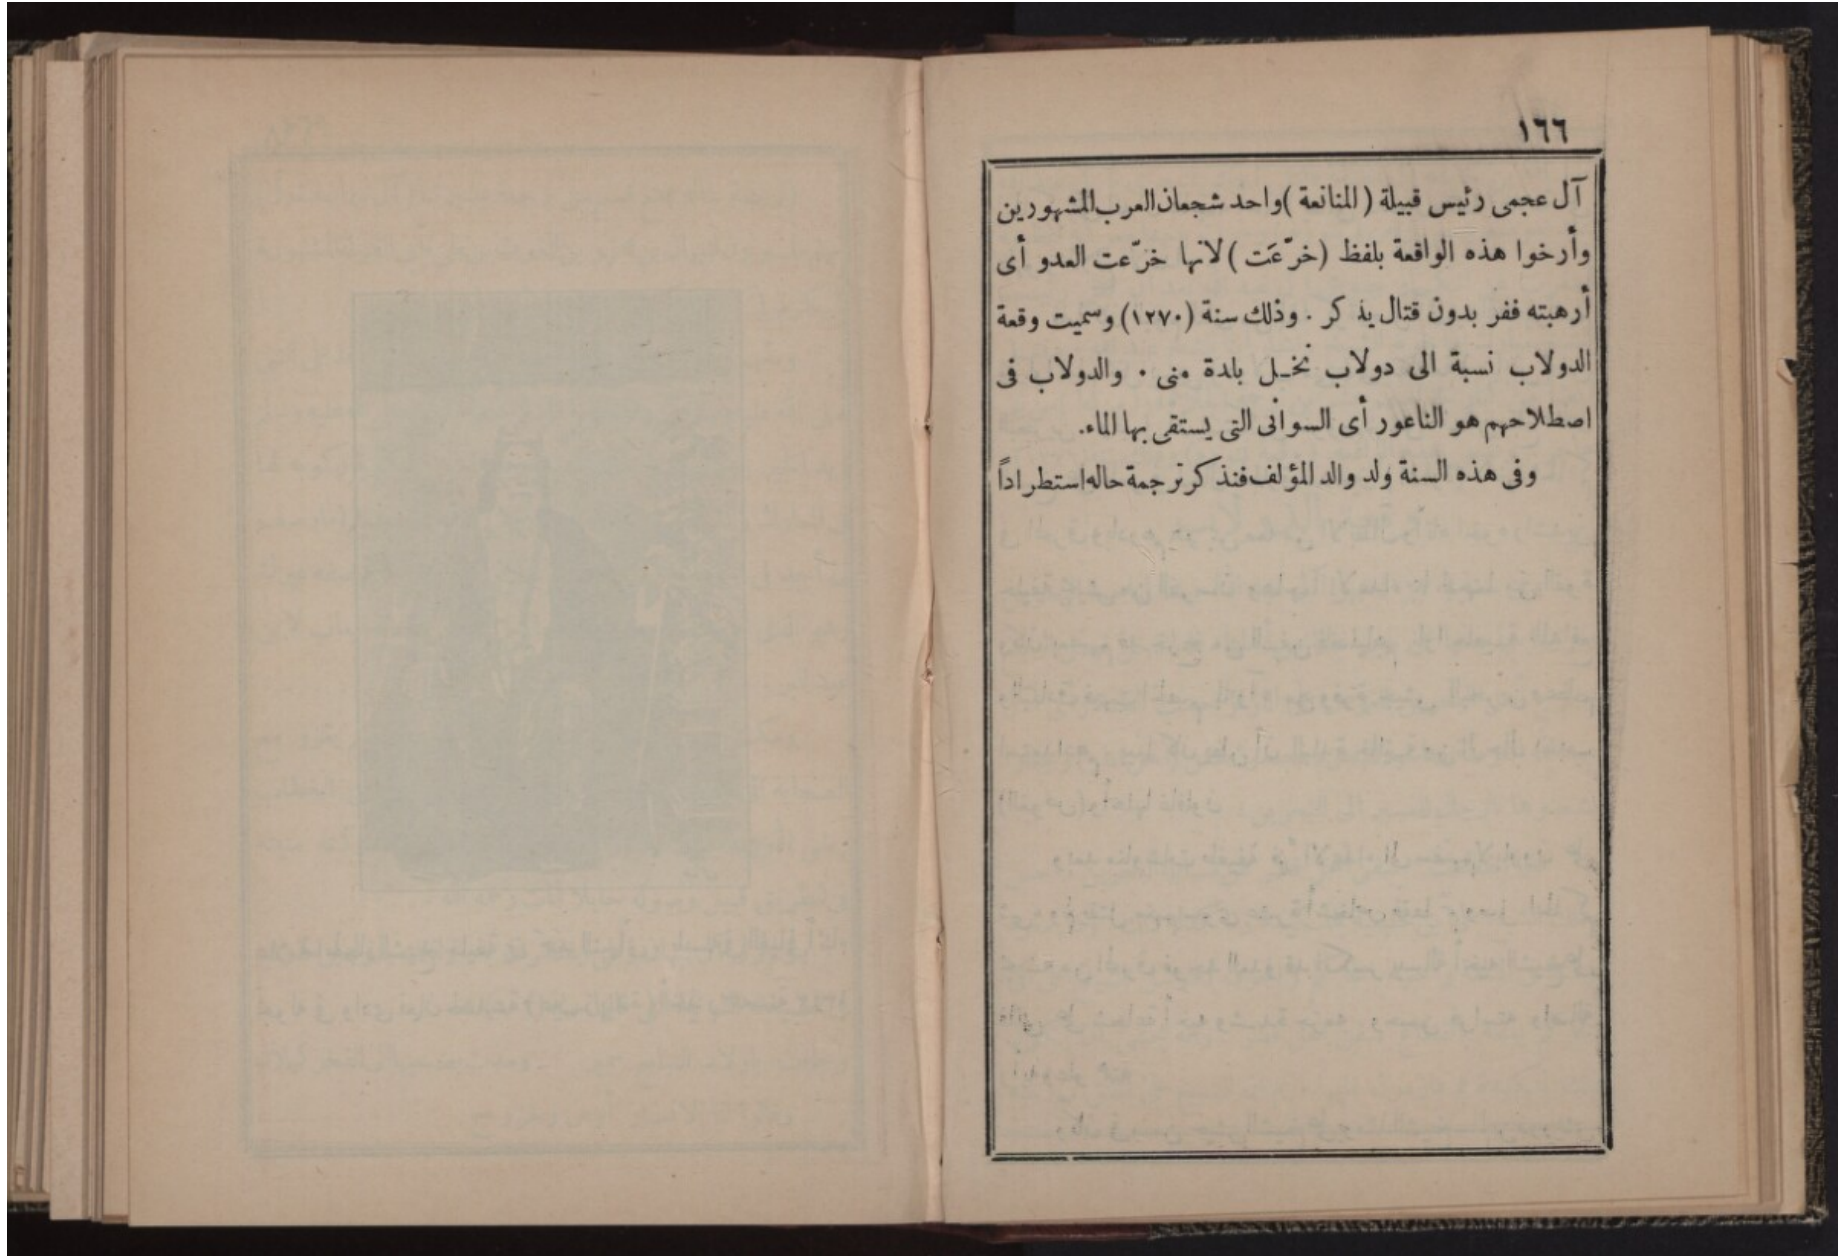 ١٦٦
آل عجمى رئيس قبيلة (المنانعة) واحد شجعان العرب المشهورين
وأرخوا هذه الواقعة بلفظ (خرّعَت) لانها خرّعت العدو أى
أرهبته ففر بدون قتال يذكر. وذلك سنة (١٢٧٠) وسميت وقعة
الدولاب نسبة الى دولاب نخل بلدة منى. والدولاب فى
اصطلاحهم هو الناعور أى السوانى التى يستقى بها الماء.
وفى هذه السنة ولد والد المؤلف فنذكر ترجمة حاله استطراداً